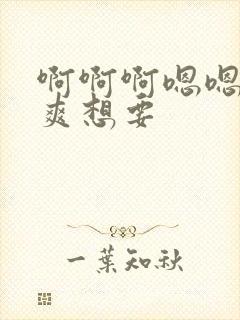 啊啊啊嗯嗯
爽想要
一葉知秋